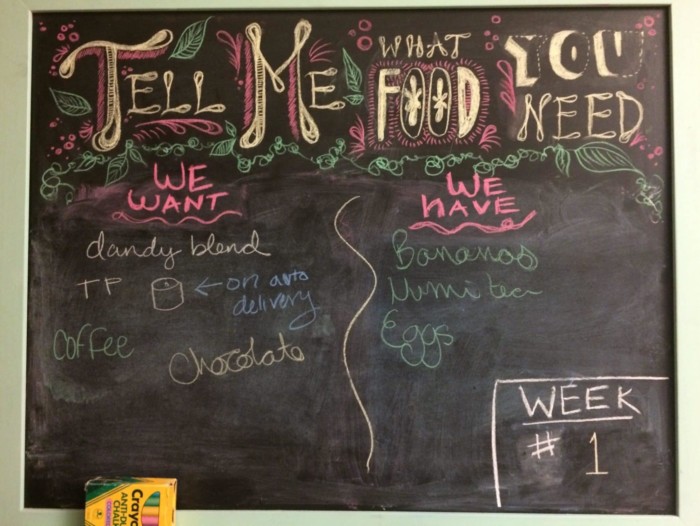 TELL ME WHAT FOOD YOU NEED
WE WANT
dandy blend
TP ← on auto delivery
Coffee
Chocolate
WE HAVE
Bananas
Numi tea
Eggs
WEEK
# 1
Crayo
ANTI-DU
CHAL